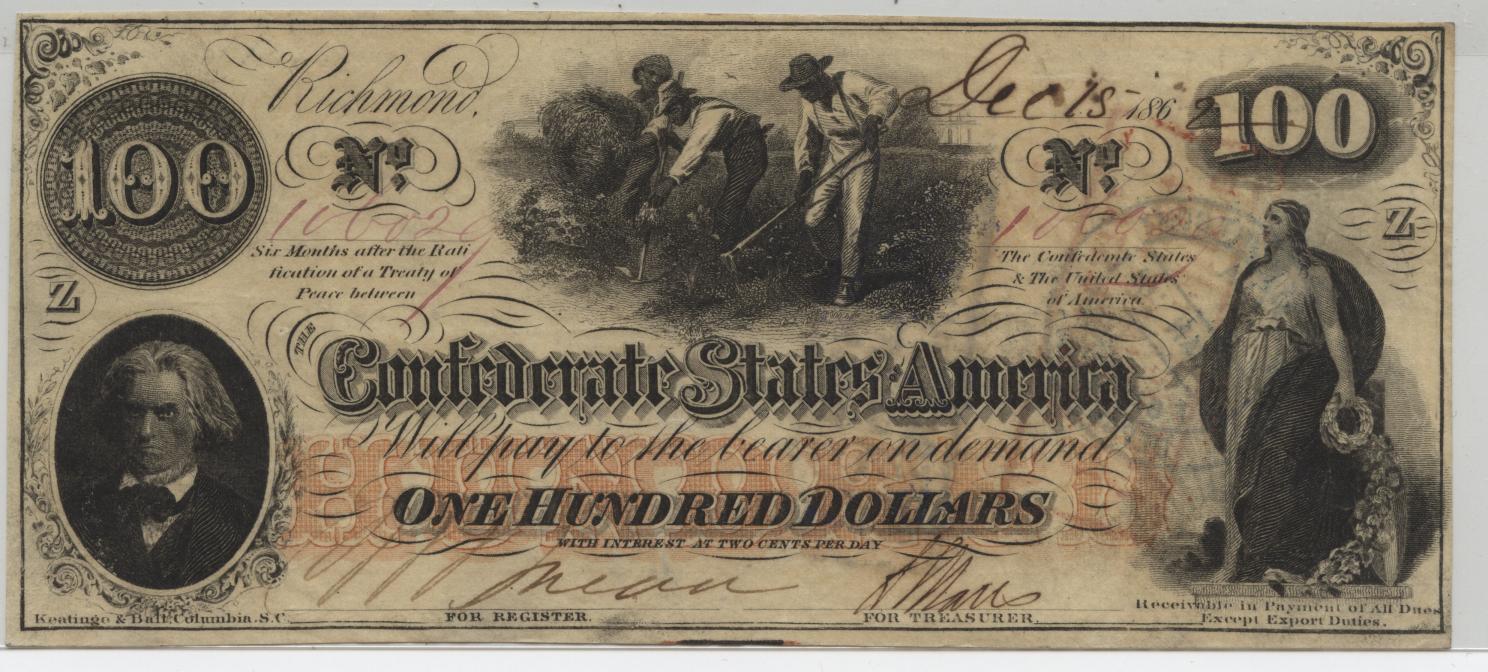 Richmond, Dec 15 1862
100 No. No. 100
106029
Six Months after the Rati
fication of a Treaty of
Peace between
The Confederate States
& The United States
of America
Z Z
THE
Confederate States America
Will pay to the bearer on demand
HUNDRED
ONE HUNDRED DOLLARS
WITH INTEREST AT TWO CENTS PER DAY
FOR REGISTER.
FOR TREASURER.
Keatinge & Ball, Columbia. S.C.
Receivable in Payment of All Dues
Except Export Duties.